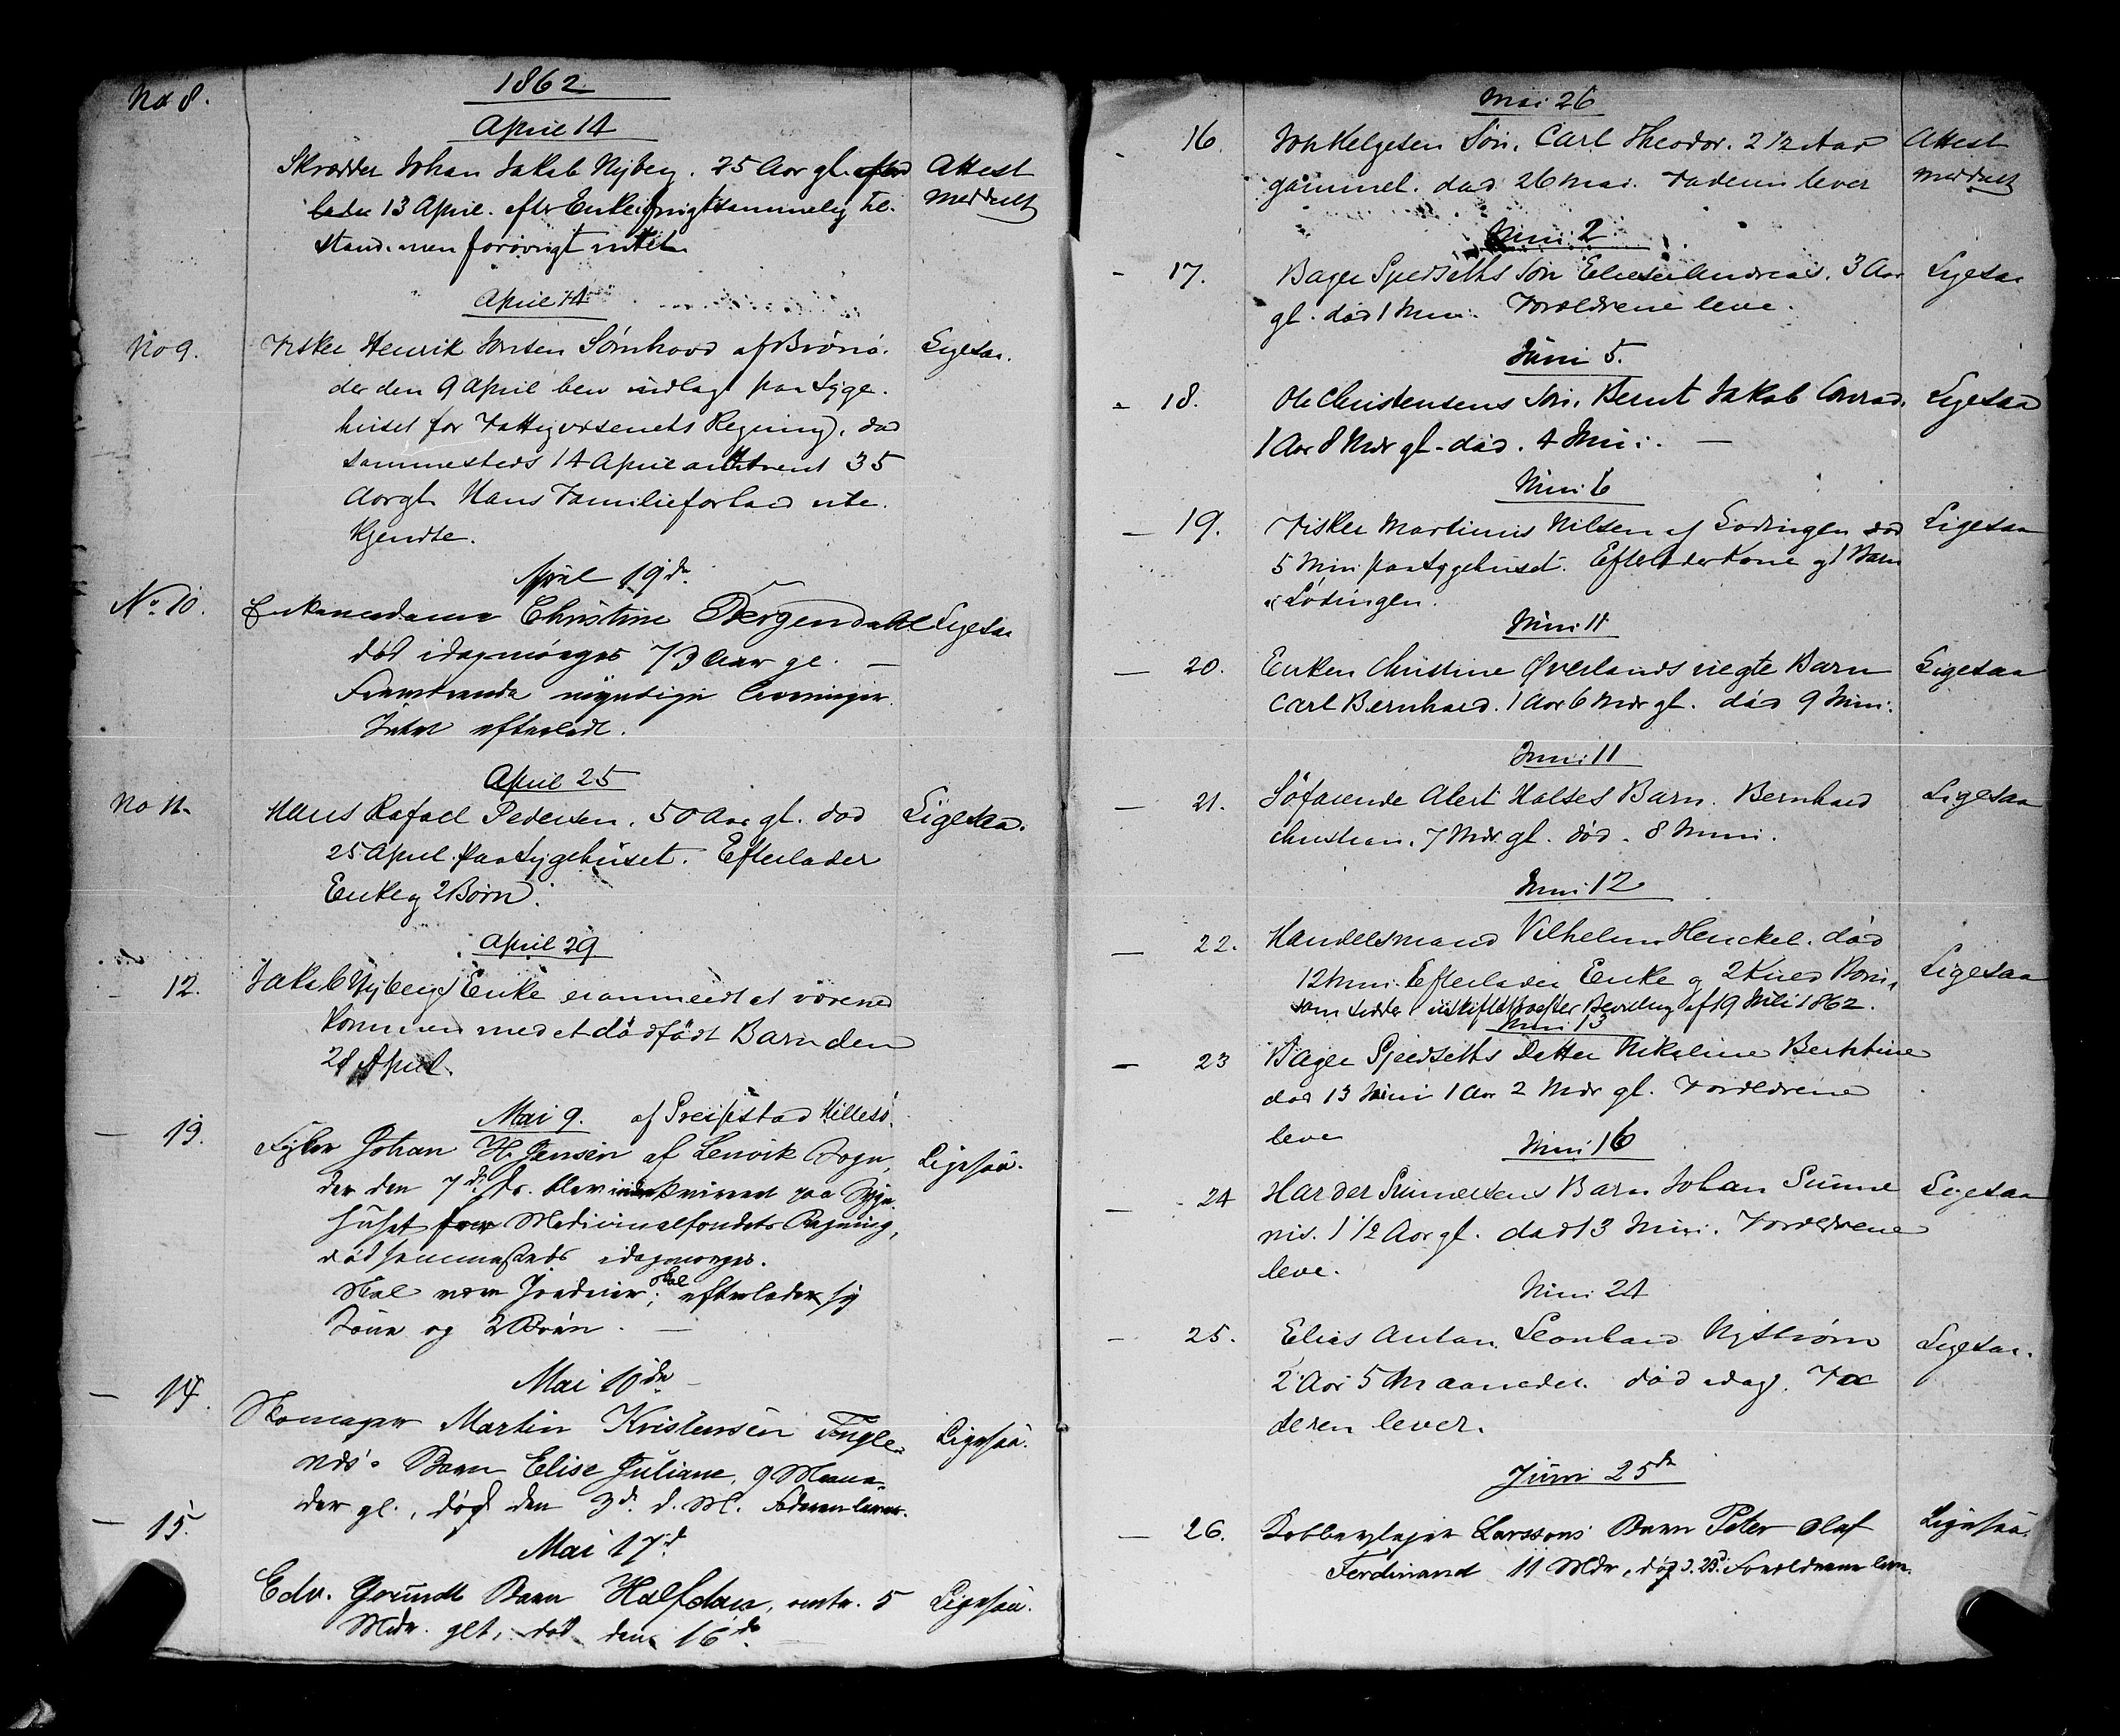 No 8.
1862
April 14
Skrædder Johan Jakab Nyberg. 25 Aar gl. efter
lader 13 April. efter Enke i frugtsammelig Til.
stand. men forøvrigt intet
Attest
Meddeelt
April 14
No 9.
Fisker Henrik Jensen Sørnhovd af Brønø.
der den 9 April blev indlagt paa Syge.
huset for Fattigvæsenets Regning, død
sammesteds 14 April omtrent 35
Aar gl. Hans Familieforhold ube.
kjendte.
Ligesaa.
April 19de
No 10.
Enkemadame Christine Bergendahl
død idagmorges 73 Aar gl. —
myndige Livsarvinger.
Intet efterladt.
Ligesaa
April 25
No 11.
Hans Rafael Pedersen. 50 Aar gl. død
25 April paa Sygehuset. Efterlader
Enke og 2 Børn.
Ligesaa.
April 29
- 12.
Jakab Nybergs Enke er anmeldt at være ned
kommen med et dødfødt Barn den
28 April.
Mai 9. af Hillesø.
— 13.
Fisker Johan H. Jensen af Lenvik Sogn,
der den 7de ds. blev indkvirret paa Syge.
huset for Medicinalfondets Regning,
død sammesteds idagmorges.
Skal være Jordeier; skal efterlade sig
Kone og 2 Børn. —
Ligesaa.
Mai 10de
— 14.
Skomager Martin Kristensen Fugle-
Barn Elise Juliane, 9 Maane-
der gl., døde den 3d. d. M. Faderen lever.
Ligesaa.
— 15.
Mai 17d.
Edv. Grundt Barn Halfdan, omtr. 5
Mdr. glt, død den 16de
Ligesaa.
Mai 26
- 16.
Joh Helgesen Søn. Carl Theodor. 2 1/2 Aar
gammel. død 26 Mai. Faderen lever
Attest
Meddeelt
Juni 2
- 17.
Bager Spedseths Søn Elieser Andreas. 3 Aar
gl. død 1 Juni. Forældrene leve.
Ligesaa
Juni 5.
- 18.
Ole Christensens Søn. Bernt Jakob Conrad.
1 Aar 8 Mdr gl. død. 4 Juni. —
Ligesaa
Juni 6
— 19.
Fisker Martinus Nilsen af Lødingen død
5 Juni paa Sygehuset. Efterlader Kone og 1 Barn
i Lødingen.
Ligesaa
Juni 11
— 20.
Enken Christine Øverlands uegte Barn
Carl Bernhard. 1 Aar 6 Mdr gl. død 9 Juni.
Ligesaa
Juni 11
— 21.
Søfarende Alert Halses Barn. Bernhard
Christian. 7 Mdr gl. død. 8 Juni.
Ligesaa
Juni 12
— 22.
Handelsmand Vilhelm Henckel. død
12 Juni. Efterlader Enke og 2 Kuld Børn,
som sidder i uskiftet Bo efter Bevilling af 19 Juli 1862.
Ligesaa
Juni 13
— 23
Bager Spedseths Datter Nikoline Berntine
død 13 Juni 1 Aar 2 Mdr gl. Forældrene
leve
Juni 16
— 24
Harder Sunnesens Barn Johan Sunne
nis. 1 1/2 Aar gl. død 13 Juni. Forældrene
leve.
Ligesaa
Juni 24
— 25.
Elias Anton Leonhard Nystrøm
2 Aar 5 Maaneder. død idag. Fa
deren lever.
Ligesaa.
Juni 25de
— 26.
Kobberslager Larssons Barn Peter Olaf
Ferdinand 11 Mdr, død d. 25d. Forældrene leve.
Ligesaa.